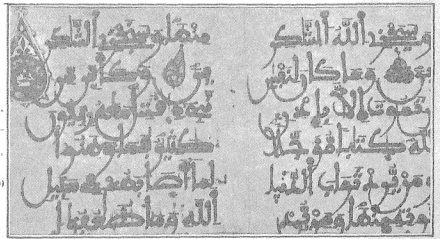 وسيجزى الله الشاكر
ين وما كان لنفس
ان تموت الا باذن ا
لله كتابا مؤجلا
ومن يرد ثواب الدنيا
نؤته منها ومن يرد
منها وسنجزى الشاكر
ين وكأين من
نبى قتل معه ربيون
كثير فما وهنوا
لما أصابهم فى سبيل
الله وما ضعفوا